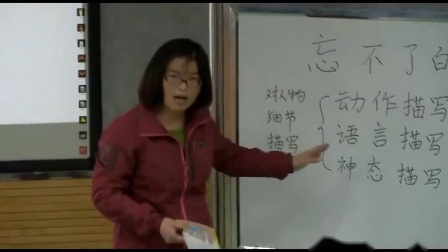 忘不了
对人物
细节
描写
动作描写
语言描写
神态描写